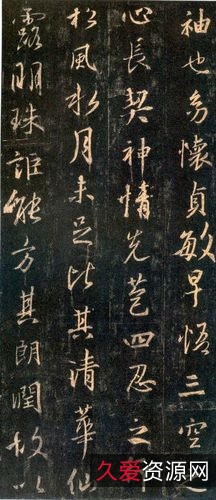 袖也幼懷貞敏早悟三空之
心長契神情先苞四忍之行
松風水月未足比其清華仙
露明珠詎能方其朗潤故以
久爱资源网
www.92at.com